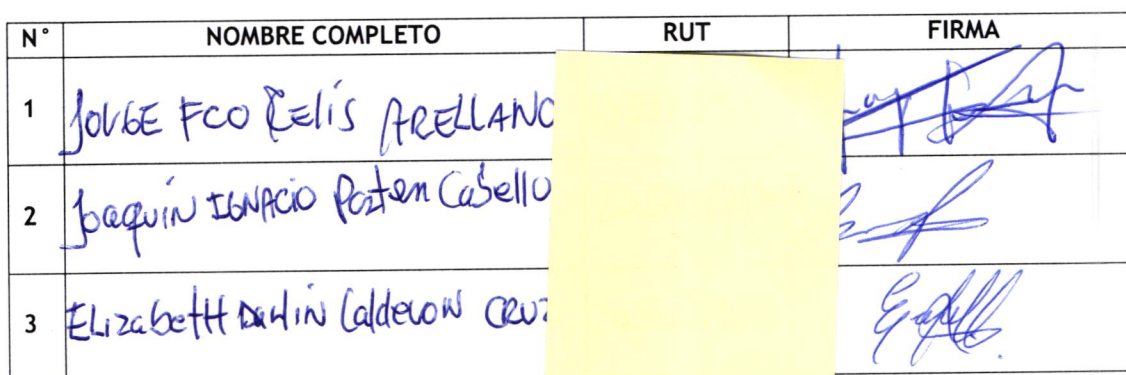 N° NOMBRE COMPLETO RUT FIRMA
1 JORGE FCO CELIS ARELLANO
2 Joaquín IGNACIO Cabello
3 ELizabetH Calderon CRUZ